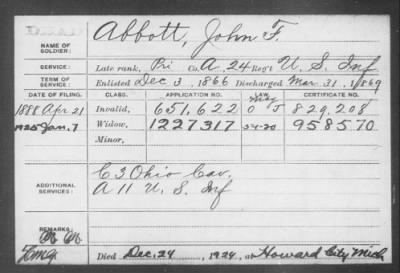 Abbott, John F.
NAME OF SOLDIER:
SERVICE: Late rank, Pri Co. A, 24 Reg't U. S. Inf
TERM OF SERVICE: Enlisted Dec. 3, 1866 Discharged Mar. 31, 1869
DATE OF FILING. CLASS. APPLICATION NO. LAW. CERTIFICATE NO.
1888 Apr 21 Invalid, 651,622 829,208
1925 Jan. 7 Widow, 1227317 958570
Minor,
C 3 Ohio Cav.
ADDITIONAL SERVICES: A 11 U. S. Inf
REMARKS:
Died Dec. 24, 1924, at Howard City Mich